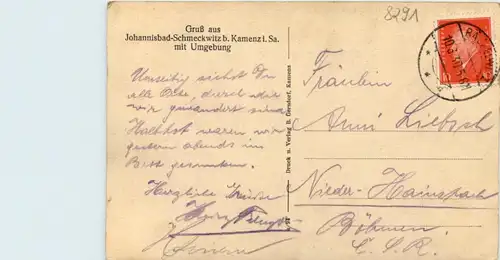 8291
Gruß aus
Johannisbad-Schmeckwitz b. Kamenz i. Sa.
mit Umgebung
Umseitig siehst Du
alle Orte, durch die
wir gewandert sind
Halbtot waren wir
gestern abends im
Bett gesunken.
Herzliche Grüsse
Druck u. Verlag B. Gersdorf, Kamenz
Fräulein
Anni Lietzsch
Nieder-Hainspach
Böhmen
C. S. R.